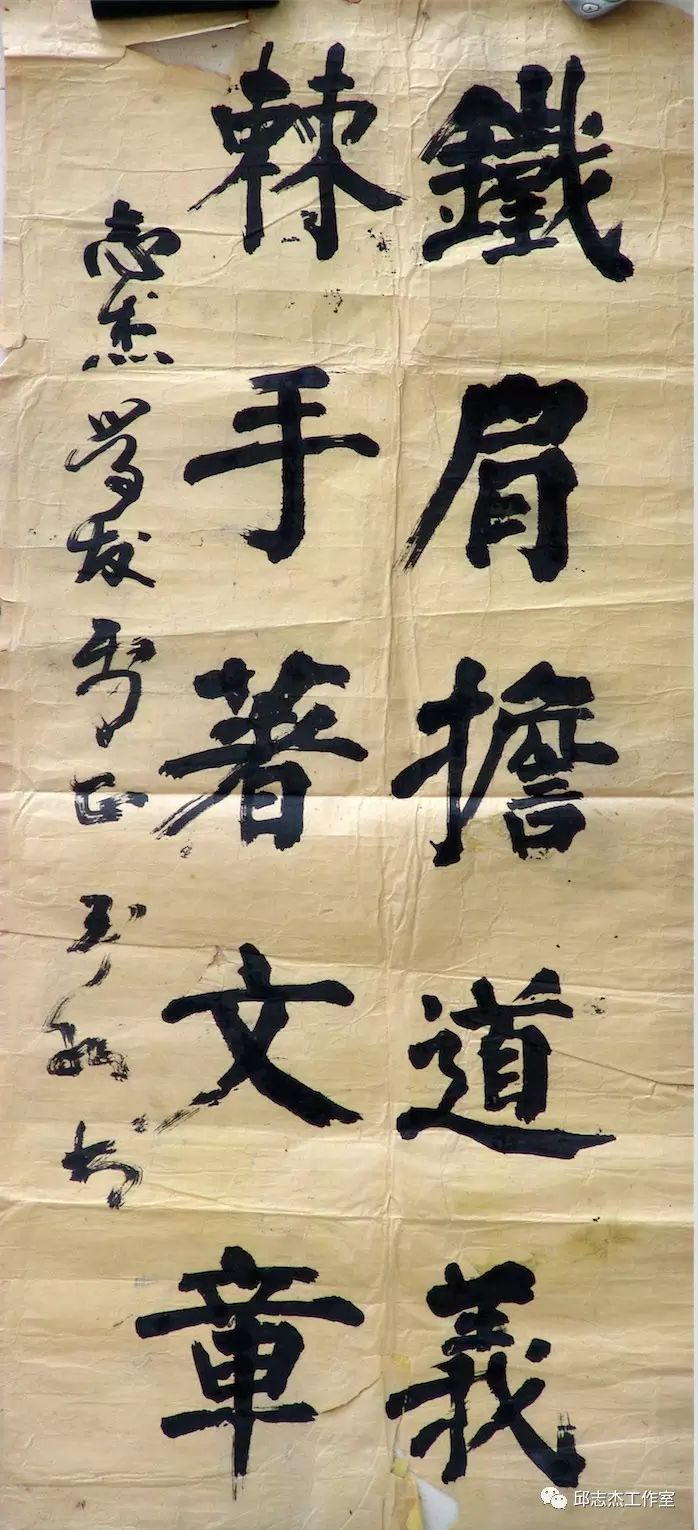 鐵肩擔道義
棘手著文章
志杰學友雨正 玉琳书
邱志杰工作室